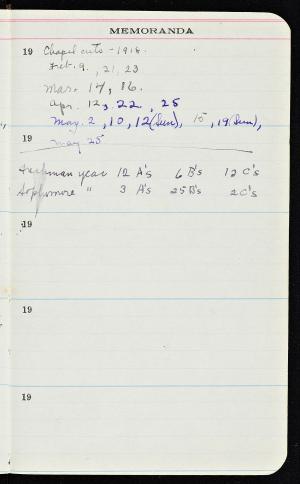 MEMORANDA
19 Chapel cuts - 1918.
Feb. 9, 21, 23
Mar. 17, 86.
Apr. 12, 22, 25
May. 2, 10, 12 (Sun), 15, 19 (Sun),
19
May 25
Freshman year 12 A's 6 B's 12 C's
Sophomore " 3 A's 25 B's 2 C's
19
19
19